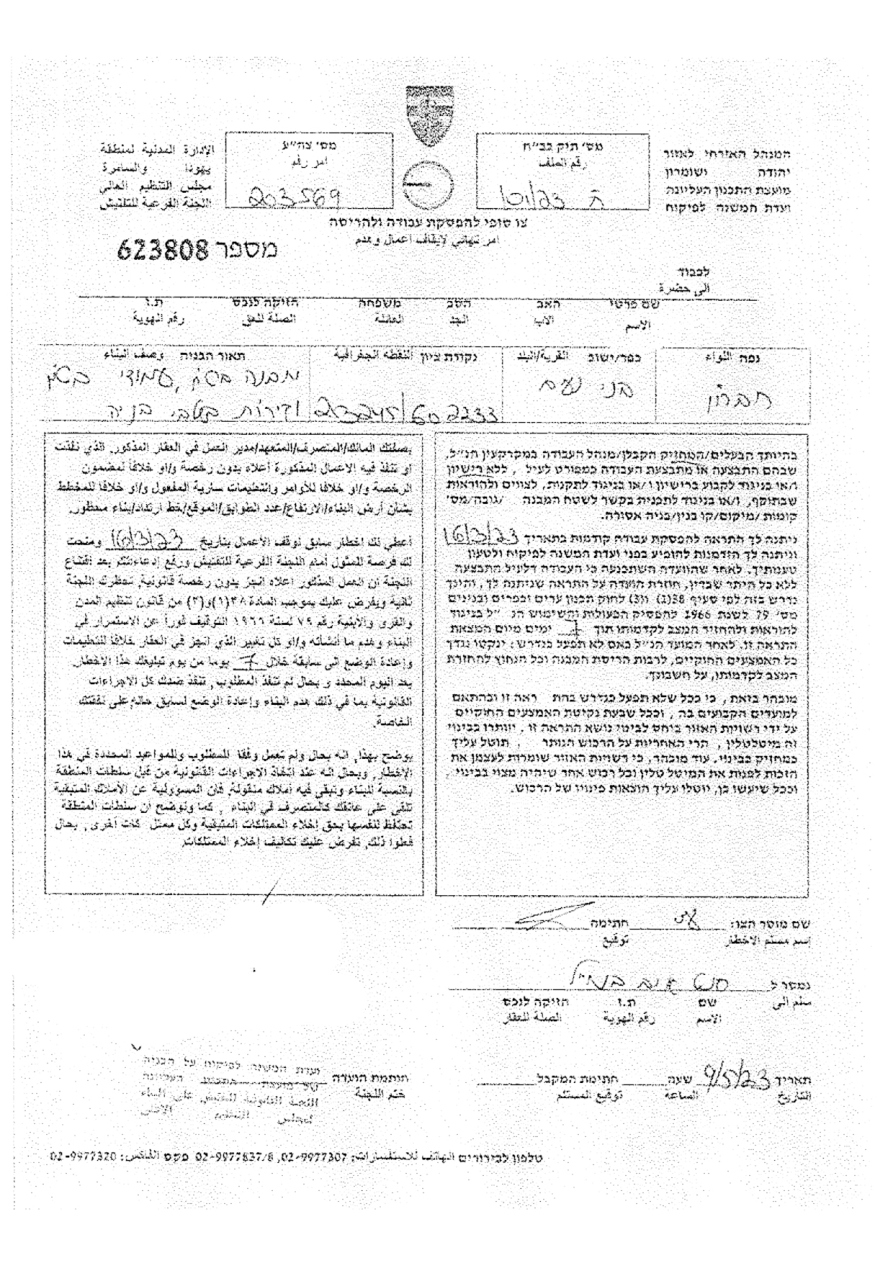 המנהל האזרחי לאזור
יהודה ושומרון
מועצת התכנון העליונה
ועדת המשנה לפיקוח
מס' תיק בב"ח
رقم الملف
ח 101/23
מס' צה"ע
امر رقم
203569
الإدارة المدنية لمنطقة
يهودا والسامرة
مجلس التنظيم العالي
اللجنة الفرعية للتفتيش
צו סופי להפסקת עבודה ולהריסה
امر نهائي لإيقاف اعمال وهدم
מספר 623808
לכבוד
الى حضرة
שם פרטי האב הסב משפחה הזיקה לנכס ת.ז
الاسم الاب الجد العائلة الصلة للعقار رقم الهوية
נפה اللواء
חברון
כפר/ישוב القرية/البلد
בני נעים
נקודת ציון النقطة الجغرافية
213245/602233
תאור הבניה وصف البناء
מבנה בטון, עמודי בטון
וקירות בשלבי בניה
בהיותך הבעלים/המחזיק הקבלן/מנהל העבודה במקרקעין הנ"ל,
שבהם התבצעה או מתבצעת העבודה כמפורט לעיל, ללא רישיון
ו/או בניגוד לקבוע ברישיון ו/או בניגוד לתקנות, לצווים ולהוראות
שבתוקף, ו/או בניגוד לתכנית בקשר לשטח המבנה /גובה/מס'
קומות /מיקום/קו בנין/בניה אסורה.
ניתנה לך התראה להפסקת עבודה קודמות בתאריך 16/3/23
וניתנה לך הזדמנות להופיע בפני ועדת המשנה לפיקוח ולטעון
טענותיך. לאחר שהוועדה השתכנעה כי העבודה דלעיל מתבצעת
ללא כל היתר שבדין, חוזרת הועדה על התראה שניתנה לך, והינך
נדרש בזה לפי סעיף 38(1) ו(3) לחוק תכנון ערים וכפרים ובנינים
מס' 79 לשנת 1966 להפסיק הפעולות והשימוש הנ"ל בניגוד
להוראות ולהחזיר המצב לקדמותו תוך 7 ימים מיום המצאת
התראה זו. לאחר המועד הנ"ל באם לא תפעל כנדרש: ינקטו נגדך
כל האמצעים החוקיים, לרבות הריסת המבנה וכל הנחוץ להחזרת
המצב לקדמותו, על חשבונך.
מובהר בזאת, כי ככל שלא תפעל כנדרש בהת ראה זו ובהתאם
למועדים הקבועים בה, וככל שבעת נקיטת האמצעים החוקיים
על ידי רשויות האזור ביחס לבינוי נושא התראה זו, יוותרו בבינוי
זה מיטלטלין, הרי האחריות על הרכוש הנותר, תוטל עליך
כמחזיק בבינוי. עוד מובהר, כי רשויות האזור שומרות לעצמן את
הזכות לפנות את המיטל טלין וכל רכוש אחר שיהיה מצוי בבינוי,
וככל שיעשו כן, יוטלו עליך הוצאות פינויו של הרכוש.
بصفتك المالك/المتصرف/المتعهد/مدير العمل في العقار المذكور, الذي نفذت
او تنفذ فيه الاعمال المذكورة أعلاه بدون رخصة و/او خلافا لمضمون
الرخصة و/او خلافا للأوامر والتنظيمات سارية المفعول و/او خلافا للمخطط
بشأن أرض البناء/الارتفاع/عدد الطوابق/الموقع/خط ارتداد/بناء محظور.
أعطي لك اخطار سابق بوقف الأعمال بتاريخ 16/3/23 ومنحت
لك فرصة للمثول أمام اللجنة الفرعية للتفتيش ورفع إدعاءاتك بعد اقتناع
اللجنة ان العمل المذكور اعلاه انجز بدون رخصة قانونية, تنظرك اللجنة
ثانية ويفرض عليك بموجب المادة ٣٨(١)و(٣) من قانون تنظيم المدن
والقرى والأبنية رقم ٧٩ لسنة ١٩٦٦ التوقيف فوراً عن الاستمرار في
البناء وهدم ما أنشأته و/او كل تغيير الذي انجز في العقار خلافا للتعليمات
وإعادة الوضع الى سابقة خلال 7 يوما من يوم تبليغك هذا الاخطار.
بعد اليوم المحدد و بحال لم تنفذ المطلوب, تنفذ ضدك كل الاجراءات
القانونية بما في ذلك هدم البناء وإعادة الوضع لسابق حاله على نفقتك
الخاصة.
يوضح بهذا, انه بحال ولم تعمل وفقا للمطلوب وللمواعيد المحددة في هذا
الإخطار, وبحال انه عند اتخاذ الاجراءات القانونية من قبل سلطات المنطقة
بالنسبة للبناء وتبقى فيه أملاك منقولة, فإن المسؤولية عن الأملاك المتبقية
تلقى على عاتقك كالمتصرف في البناء, كما ونوضح أن سلطات المنطقة
تحتفظ لنفسها بحق إخلاء الممتلكات المتبقية وكل ممتل كات أخرى, بحال
فعلوا ذلك, تفرض عليك تكاليف إخلاء الممتلكات.
שם מוסר הצו: חתימה
إسم مسلم الاخطار توقيع
נמסר ל
سلم الى
שם ת.ז הזיקה לנכס
الاسم رقم الهوية الصلة للعقار
תאריך 9/5/23 שעה חתימת המקבל
التاريخ الساعة توقيع المستلم
חותמת הועדה
ختم اللجنة
ועדת המשנה לפיקוח על הבניה
טלפון לבירורים الهاتف للاستفسارات: 02-9977307, 02-9977837/8 פקס الفاكس: 02-9977320